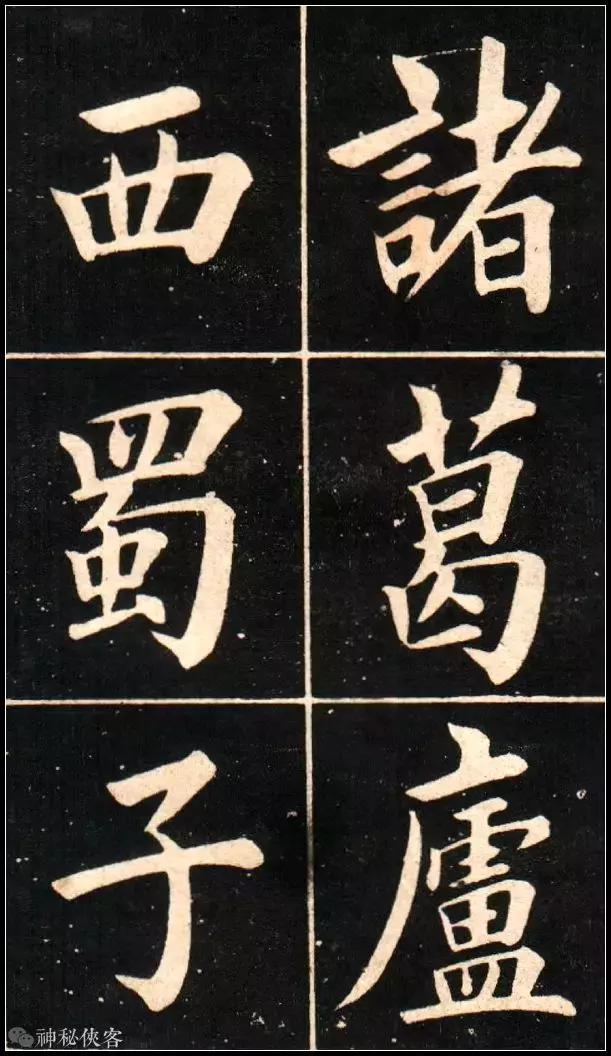 諸葛廬
西蜀子
神秘俠客